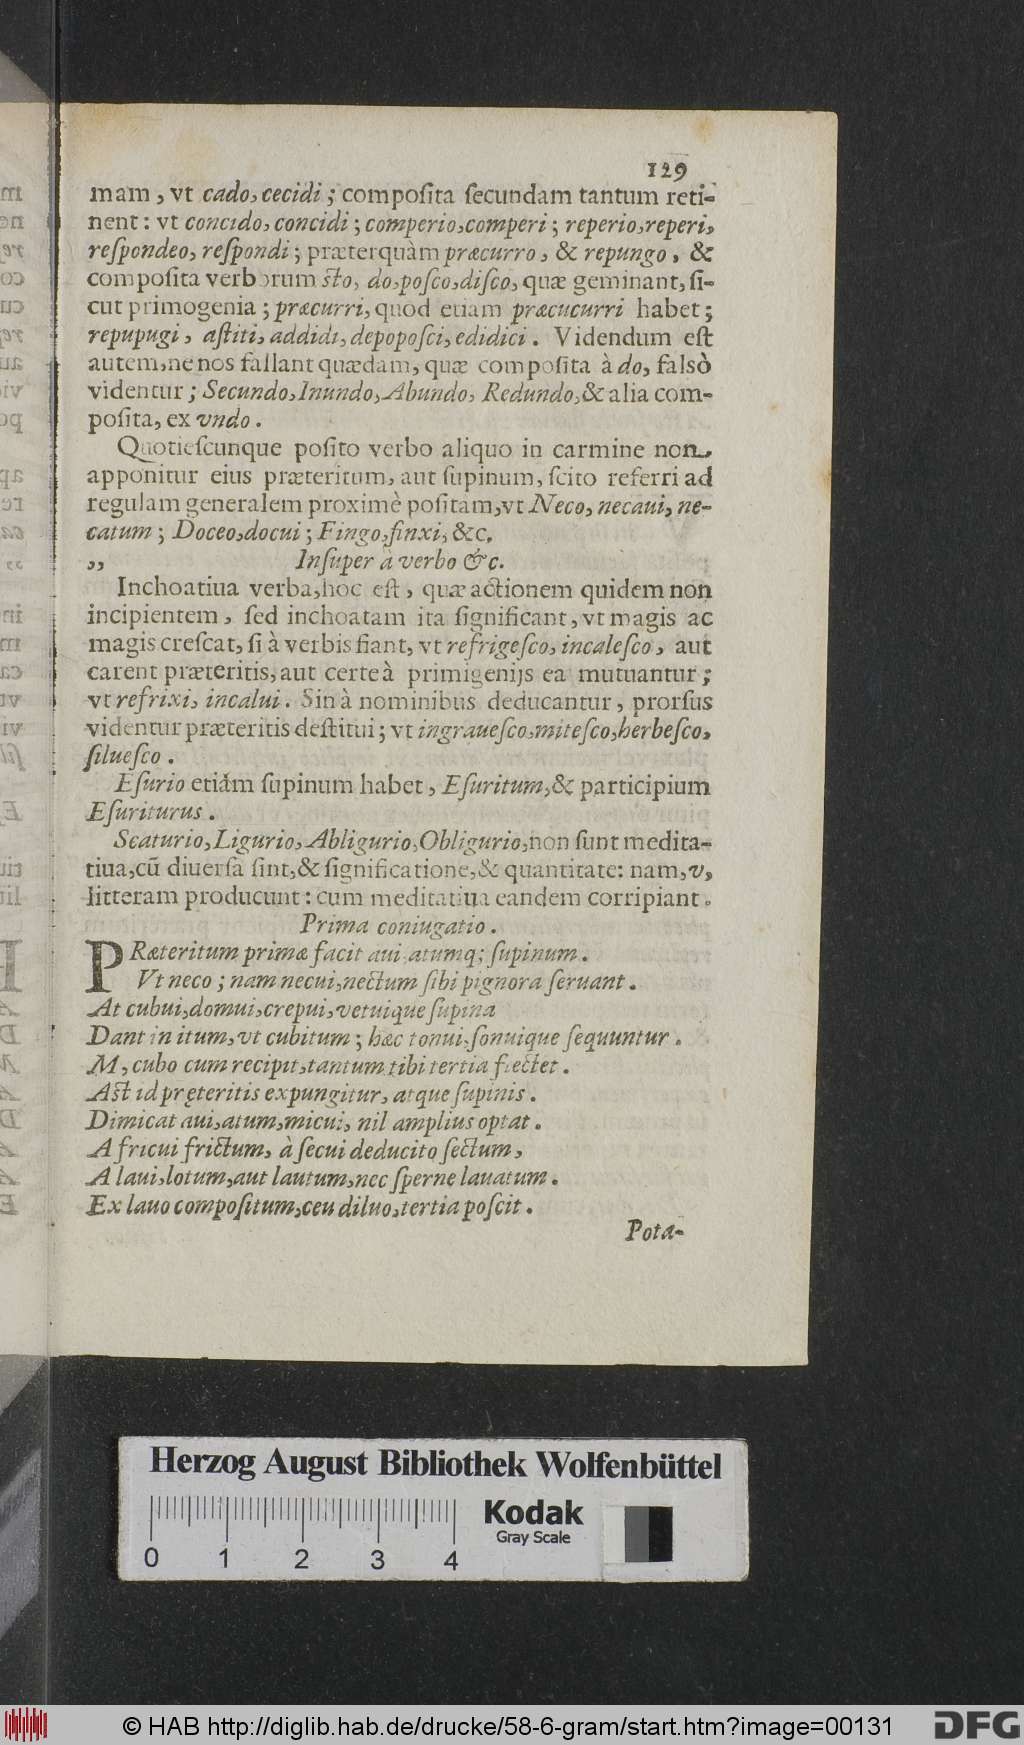 129
mam, vt cado, cecidi; compoſita ſecundam tantum reti-
nent: vt concido, concidi; comperio, comperi; reperio, reperi,
reſpondeo, reſpondi; præterquàm præcurro, & repungo, &
compoſita verborum ſto, do, poſco, diſco, quæ geminant, ſi-
cut primogenia; præcurri, quod etiam præcucurri habet;
repupugi, aſtiti, addidi, depopoſci, edidici. Videndum eſt
autem, ne nos fallant quædam, quæ compoſita à do, falsò
videntur; Secundo, Inundo, Abundo, Redundo, & alia com-
poſita, ex vndo.
Quotieſcunque poſito verbo aliquo in carmine non
apponitur eius præteritum, aut ſupinum, ſcito referri ad
regulam generalem proximè poſitam, vt Neco, necaui, ne-
catum; Doceo, docui; Fingo, finxi, &c.
„ Inſuper à verbo &c.
Inchoatiua verba, hoc eſt, quæ actionem quidem non
incipientem, ſed inchoatam ita ſignificant, vt magis ac
magis creſcat, ſi à verbis fiant, vt refrigeſco, incaleſco, aut
carent præteritis, aut certe à primigenijs ea mutuantur;
vt refrixi, incalui. Sin à nominibus deducantur, prorſus
videntur præteritis deſtitui; vt ingraueſco, miteſco, herbeſco,
ſilueſco.
Eſurio etiàm ſupinum habet, Eſuritum, & participium
Eſuriturus.
Scaturio, Ligurio, Abligurio, Obligurio, non ſunt medita-
tiua, cū diuerſa ſint, & ſignificatione, & quantitate: nam, v,
litteram producunt: cum meditatiua eandem corripiant.
Prima coniugatio.
PRæteritum primæ facit aui atumq; ſupinum.
Vt neco; nam necui, nectum ſibi pignora ſeruant.
At cubui, domui, crepui, vetuique ſupina
Dant in itum, vt cubitum; hæc tonui, ſonuique ſequuntur.
M, cubo cum recipit, tantum tibi tertia flectet.
Aſt id pręteritis expungitur, atque ſupinis.
Dimicat aui, atum, micui, nil amplius optat.
A fricui frictum, à ſecui deducito ſectum,
A laui, lotum, aut lautum, nec ſperne lauatum.
Ex lauo compoſitum, ceu diluo, tertia poſcit.
Pota-
Herzog August Bibliothek Wolfenbüttel
Kodak
Gray Scale
0 1 2 3 4
© HAB http://diglib.hab.de/drucke/58-6-gram/start.htm?image=00131
DFG